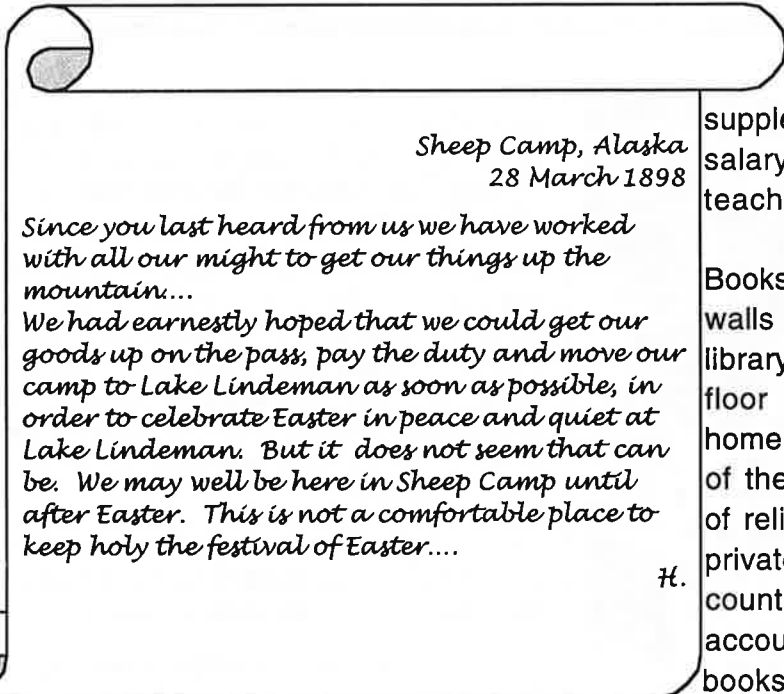 Sheep Camp, Alaska
28 March 1898
Since you last heard from us we have worked
with all our might to get our things up the
mountain....
We had earnestly hoped that we could get our
goods up on the pass, pay the duty and move our
camp to Lake Lindeman as soon as possible, in
order to celebrate Easter in peace and quiet at
Lake Lindeman. But it does not seem that can
be. We may well be here in Sheep Camp until
after Easter. This is not a comfortable place to
keep holy the festival of Easter....
H.
salary
Books
walls
library
floor
home
of the
of reli
count
books